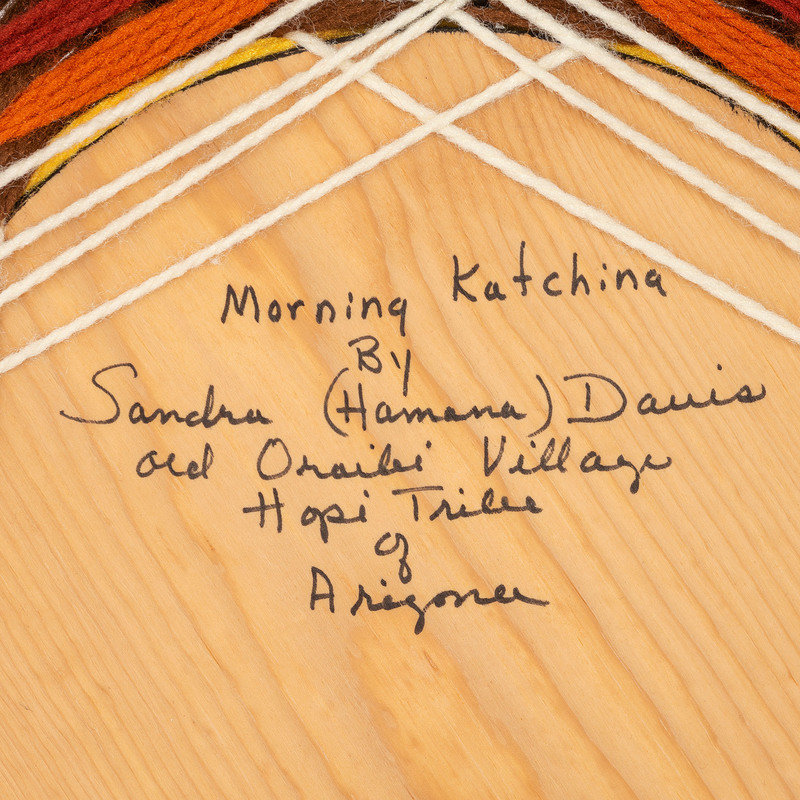 Morning Katchina
By
Sandra (Hamana) Davis
Old Oraibi Village
Hopi Tribe
of
Arizona